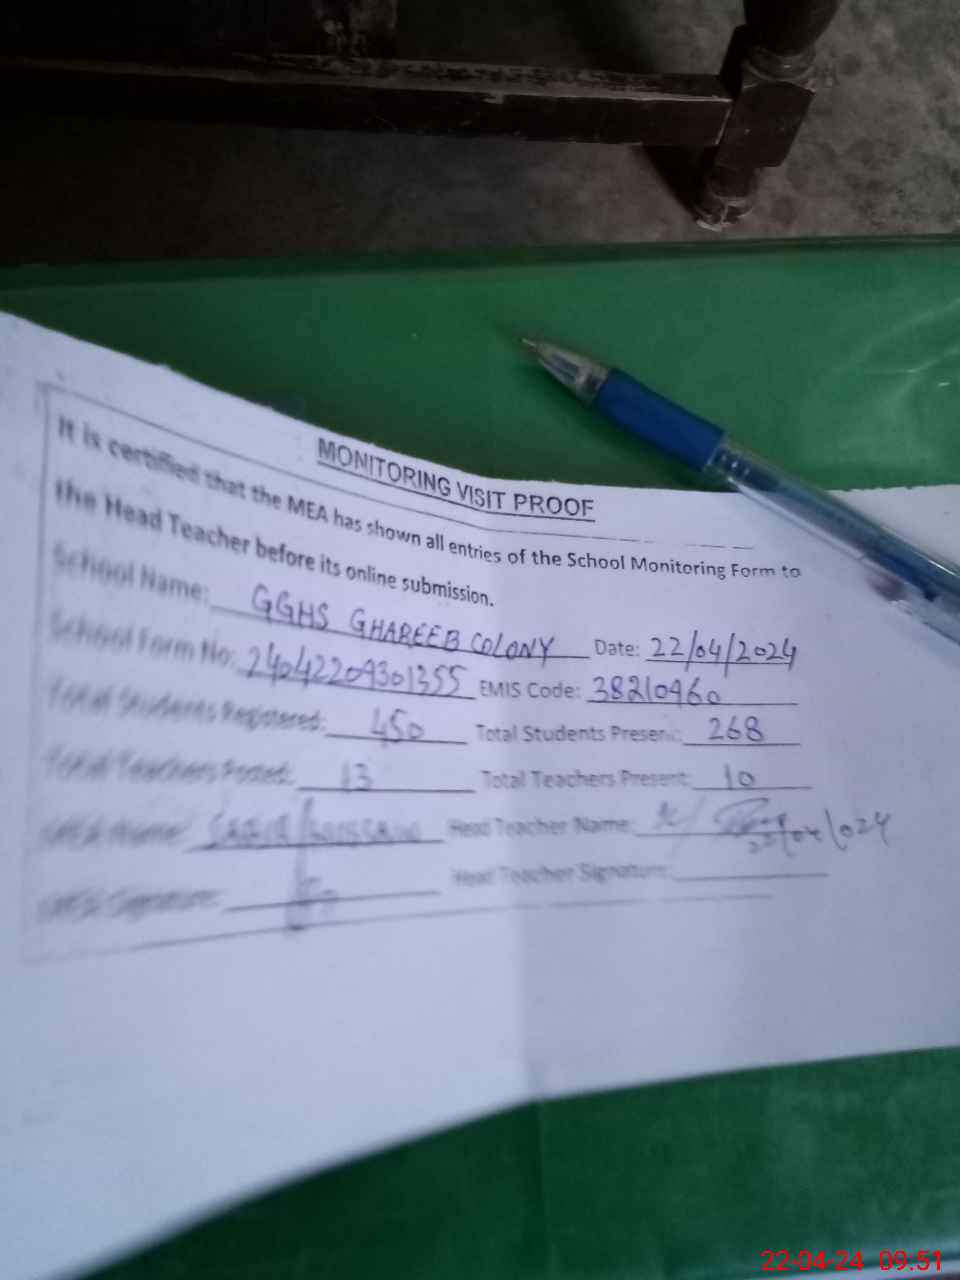 MONITORING VISIT PROOF
It is certified that the MEA has shown all entries of the School Monitoring Form to
the Head Teacher before its online submission.
School Name: GGHS GHAREEB COLONY Date: 22/04/2024
School Form No: 24042209301355 EMIS Code: 38210460
Total Students Registered: 450 Total Students Present: 268
Total Teachers Posted: 13 Total Teachers Present: 10
MEA Name: Head Teacher Name:
22/04/024
MEA Signature: Head Teacher Signature:
22-04-24 09:51